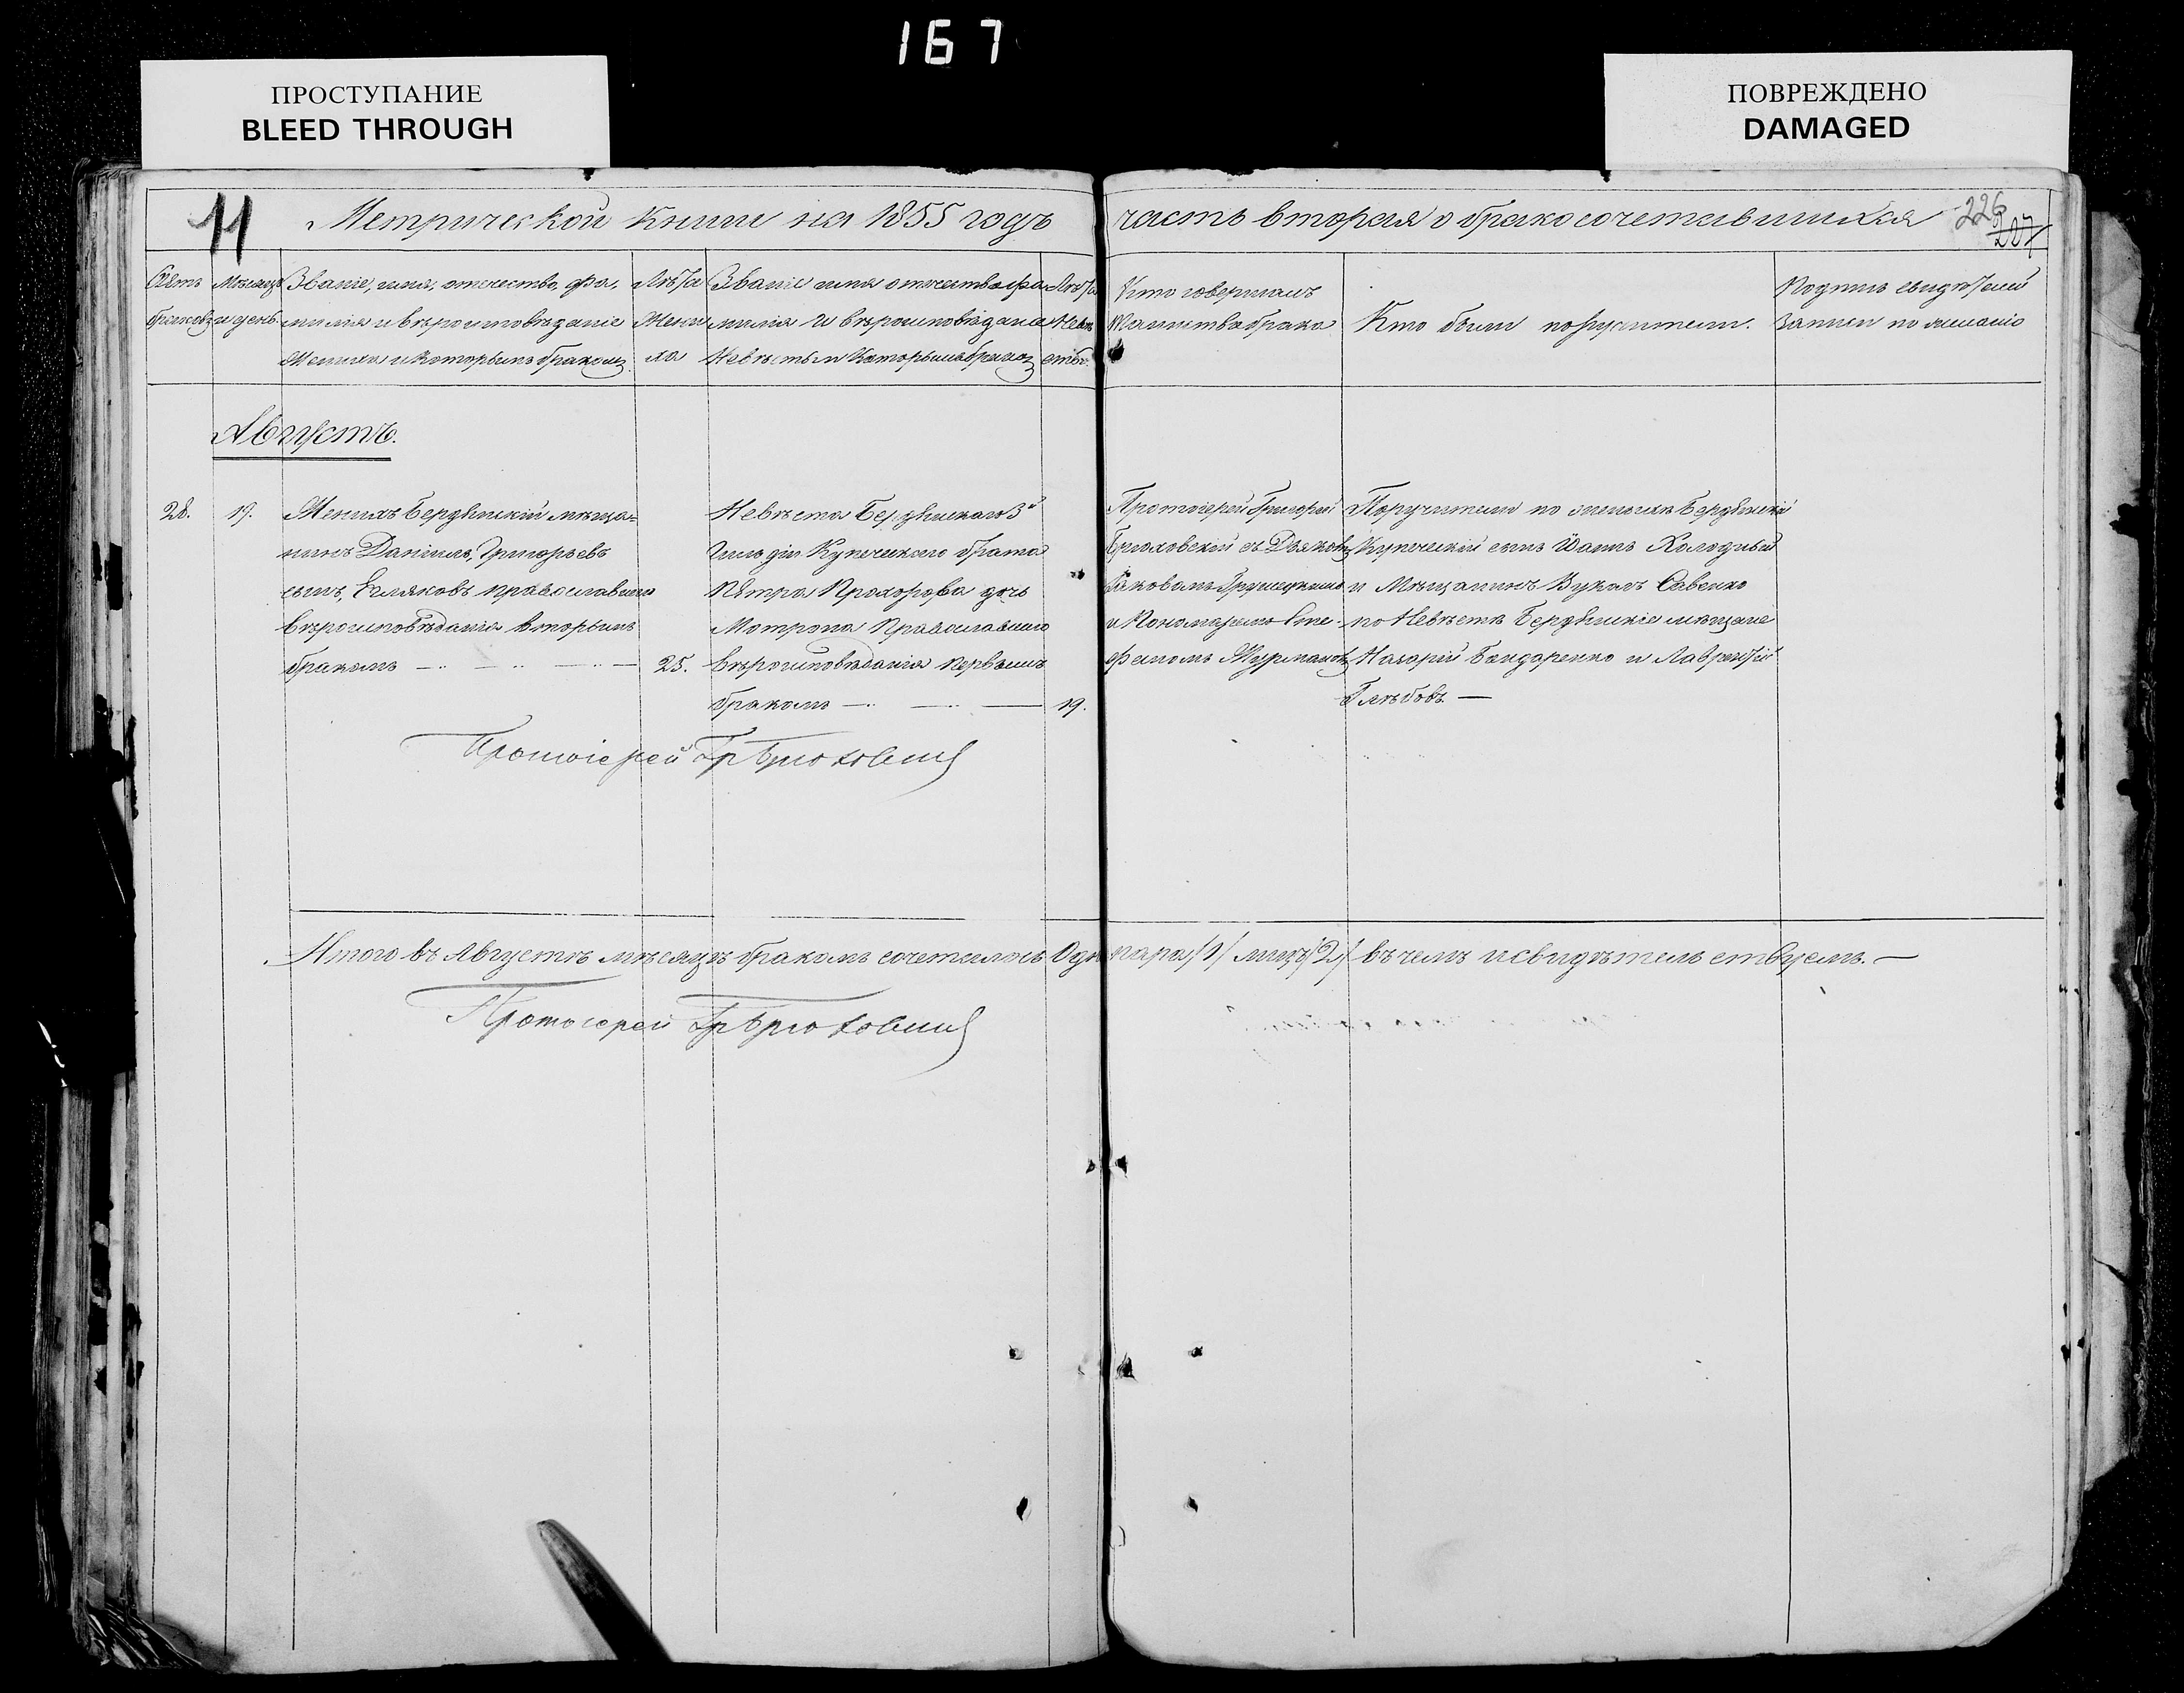 167
ПРОСТУПАНИЕ
BLEED THROUGH
ПОВРЕЖДЕНО
DAMAGED
11
Метрической Книги на 1855 годъ
часть вторая о бракосочетавшихся
226
207
Счетъ браковъ
Мѣсяцъ и день
Званіе, имя, отечество, фа-
милія и вѣроисповѣданіе
Жениха и которымъ бракомъ
Лѣта
Жени
ха
Званіе имя отечество фа
милія и вѣроисповѣданіе
Невѣсты и которымъ бракомъ
Лѣта
Невѣ
сты
Кто совершалъ
Таинство брака
Кто были поручители.
Подпись свидѣтелей
записи по желанію
Августъ.
28.
19.
Женихъ Бердянскій мѣща=
нинъ Даніилъ, Григорьевъ
сынъ, православнаго
вѣроисповѣданія вторымъ
бракомъ
25.
Невѣста Бердянскаго 3й
Гильдіи Купеческаго брата
Петра Прохорова дочь
Мотрона Православнаго
вѣроисповѣданія первымъ
бракомъ
19.
Протоіерей Григорій
Брюховскій съ Дьякономъ
Іаковомъ
и Пономаремъ Сте-
фаномъ
Поручители по женихѣ Бердянскій
Купеческій сынъ Іоаннъ Холодный
и Мѣщанинъ Вуколъ Савенко
по Невѣстѣ Бердянскіе мѣщане
Назарій Бондаренко и Лаврентій
Глѣбовъ. —
Протоіерей Гр Брюховскій
Итого въ Августѣ мѣсяцѣ бракомъ сочеталось Одна пара /1/ лицъ /2/ въ чемъ и свидѣтельствуемъ. —
Протоіерей Гр Брюховскій